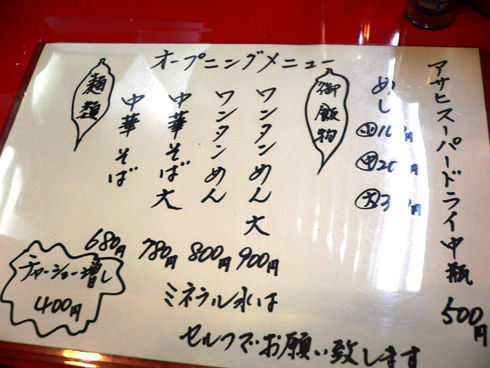 オープニングメニュー
麺類
中華そば 680円
中華そば大 780円
ワンタンめん 800円
ワンタンめん大 900円
チャーシュー増し
400円
御飯物
めし
小
中
大
アサヒスーパードライ中瓶 500円
ミネラル水は
セルフでお願い致します